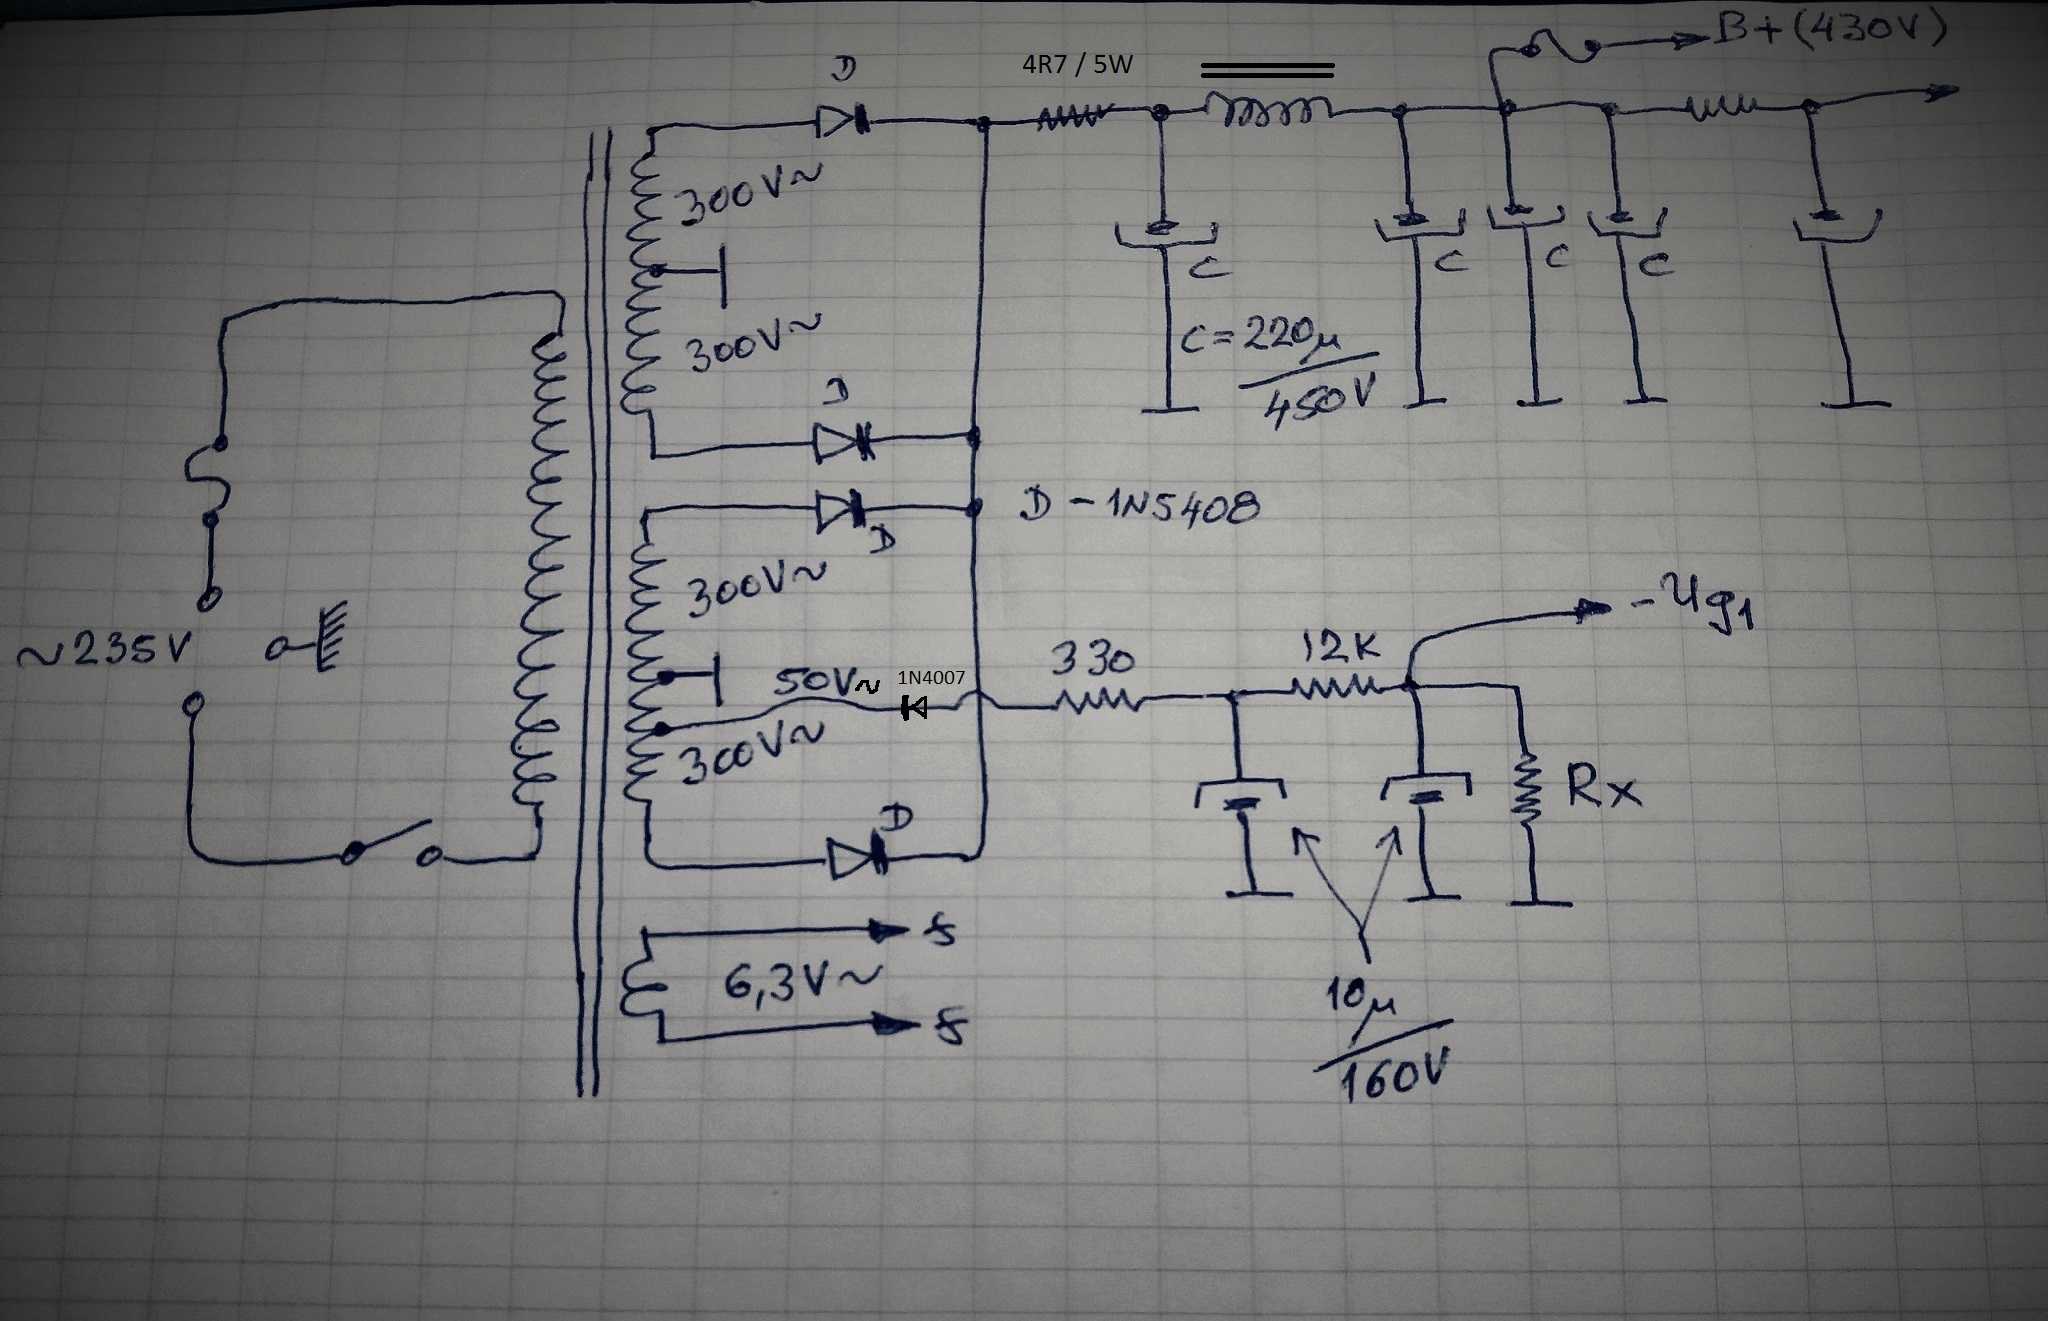 B+(430V)
D
4R7 / 5W
300V~
300V~
C
C
C
C
C=220μ
450V
D
D – 1N5408
D
300V~
-Ug1
~235V
50V~
1N4007
330
12K
300V~
Rx
D
f
6,3V~
f
10μ
160V